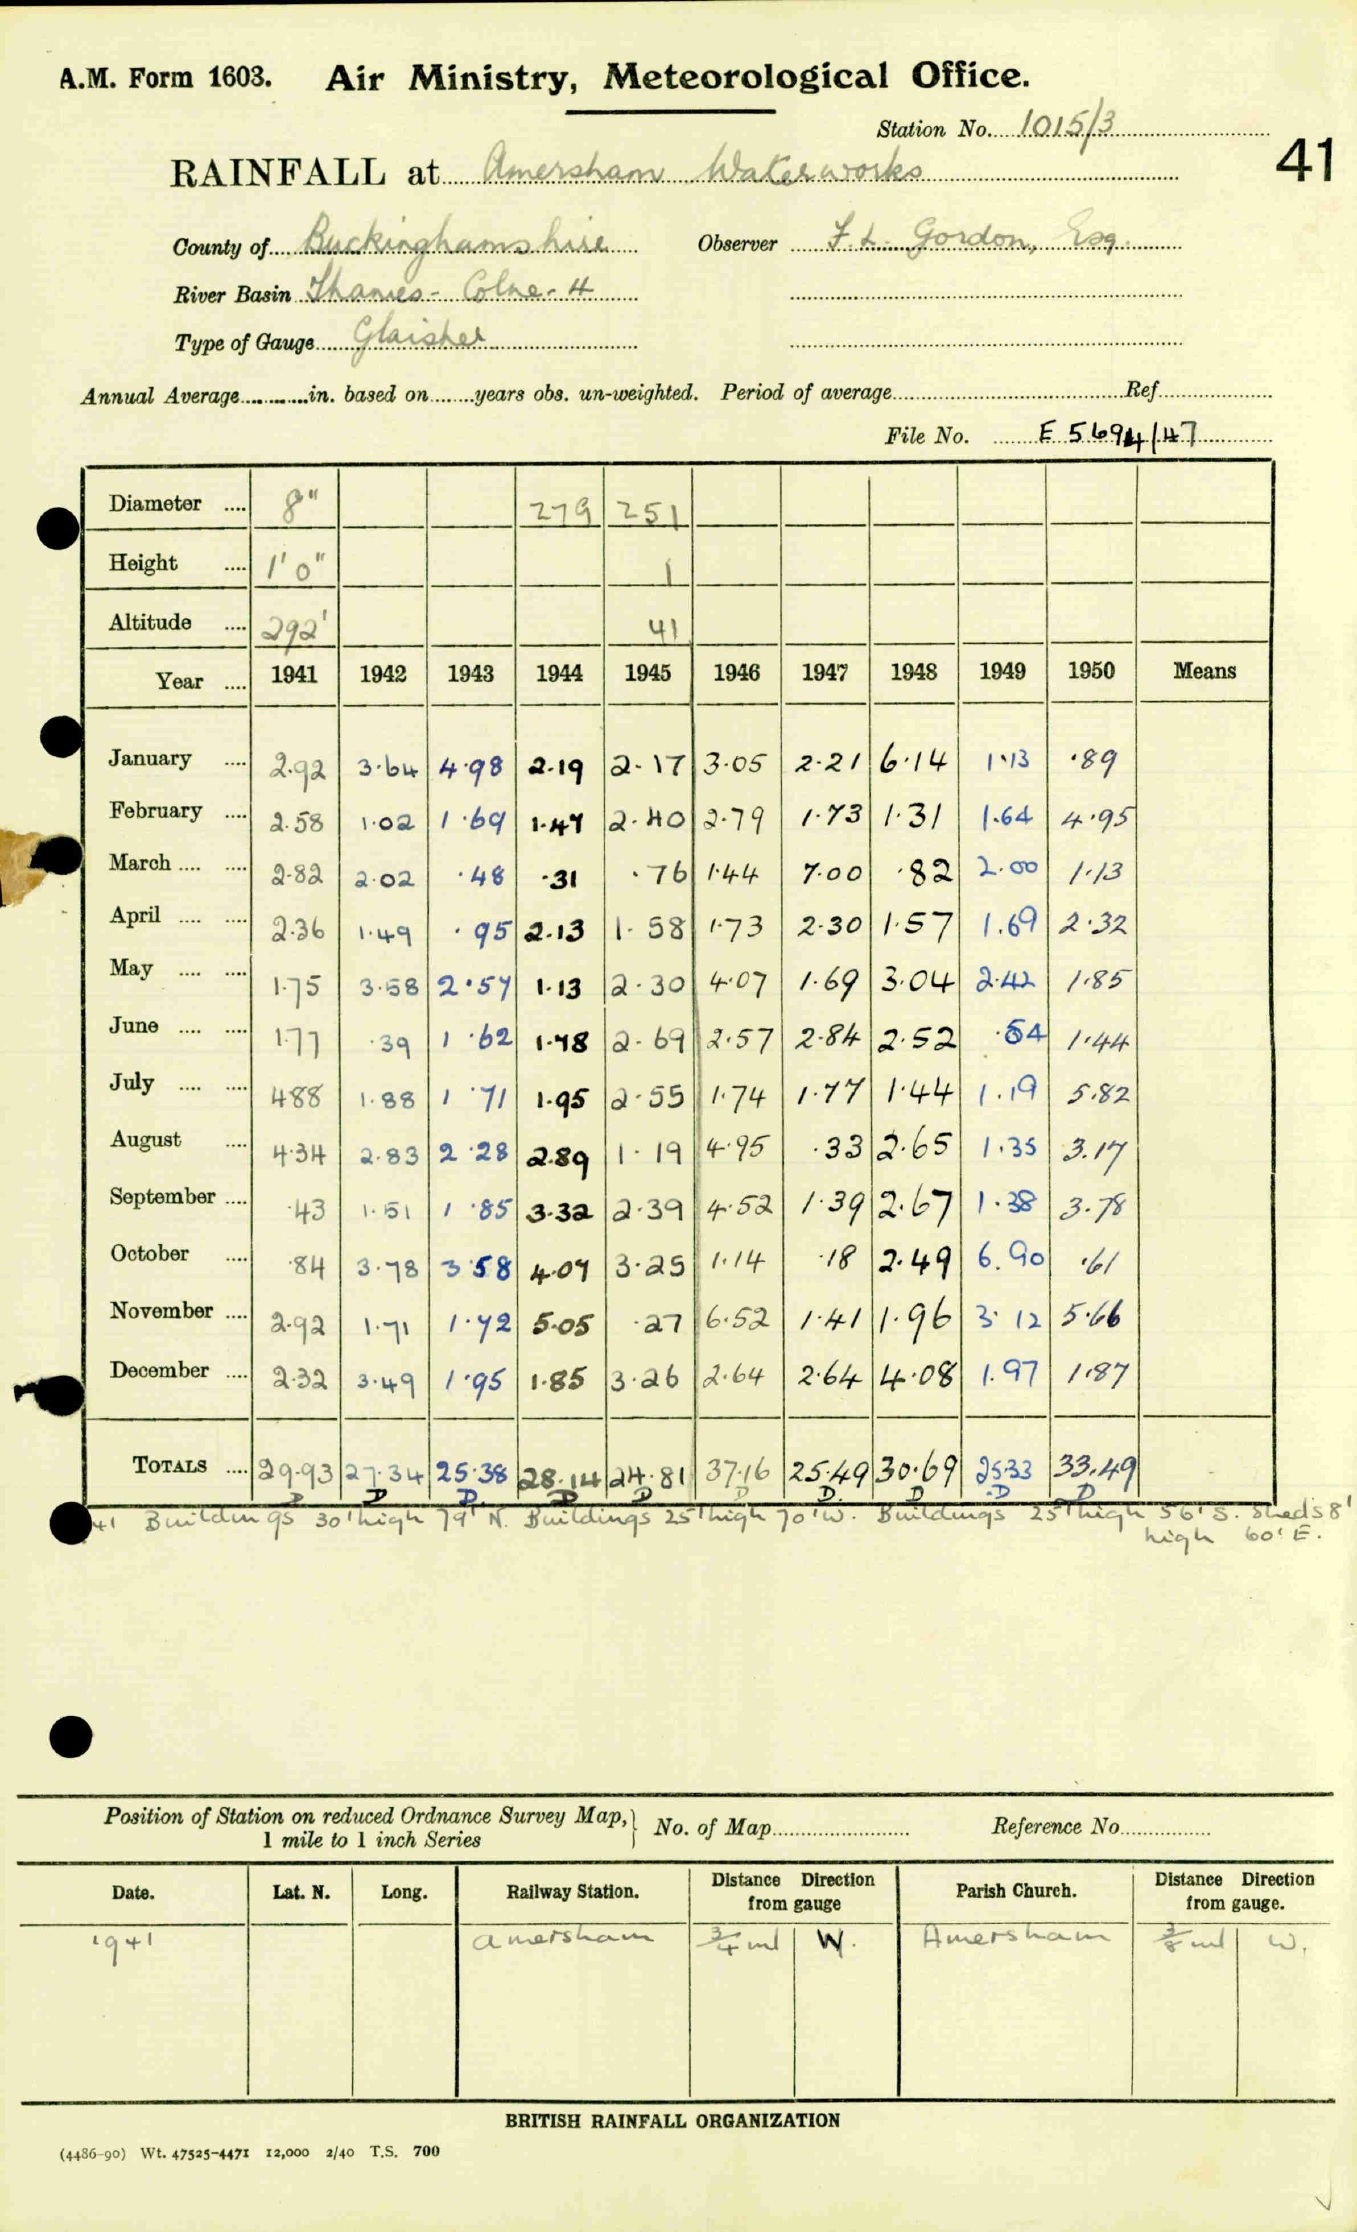 A.M. Form 1603. Air Ministry, Meteorological Office.
Station No. 1015/3
41
RAINFALL at Amersham Waterworks
County of Buckinghamshire Observer F.L. Gordon, Esq.
River Basin Thames - Colne - 4
Type of Gauge Glaisher
Annual Average in. based on years obs. un-weighted. Period of average Ref.
File No. E 5694/47
Diameter 8" 279 251
Height 1' 0" 1
Altitude 292' 41
Year 1941 1942 1943 1944 1945 1946 1947 1948 1949 1950 Means
January 2.92 3.64 4.98 2.19 2.17 3.05 2.21 6.14 1.13 .89
February 2.58 1.02 1.69 1.47 2.40 2.79 1.73 1.31 1.64 4.95
March 2.82 2.02 .48 .31 .76 1.44 7.00 .82 2.00 1.13
April 2.36 1.49 .95 2.13 1.58 1.73 2.30 1.57 1.69 2.32
May 1.75 3.58 2.57 1.13 2.30 4.07 1.69 3.04 2.42 1.85
June 1.77 .39 1.62 1.78 2.69 2.57 2.84 2.52 .54 1.44
July 4.88 1.88 1.71 1.95 2.55 1.74 1.77 1.44 1.19 5.82
August 4.34 2.83 2.28 2.89 1.19 4.95 .33 2.65 1.35 3.17
September .43 1.51 1.85 3.32 2.39 4.52 1.39 2.67 1.38 3.78
October .84 3.78 3.58 4.07 3.25 1.14 .18 2.49 6.90 .61
November 2.92 1.71 1.72 5.05 .27 6.52 1.41 1.96 3.12 5.66
December 2.32 3.49 1.95 1.85 3.26 2.64 2.64 4.08 1.97 1.87
TOTALS 29.93 27.34 25.38 28.14 24.81 37.16 25.49 30.69 25.33 33.49
D D D D D D D D D D
41 Buildings 30' high 79' N. Buildings 25' high 70' W. Buildings 25' high 56' S. Sheds 8'
high 60' E.
Position of Station on reduced Ordnance Survey Map, 1 mile to 1 inch Series No. of Map Reference No.
Date. Lat. N. Long. Railway Station. Distance Direction from gauge Parish Church. Distance Direction from gauge.
1941 Amersham 3/4 ml W. Amersham 3/8 ml W.
BRITISH RAINFALL ORGANIZATION
(4486-90) Wt. 47525-4471 12,000 2/40 T.S. 700